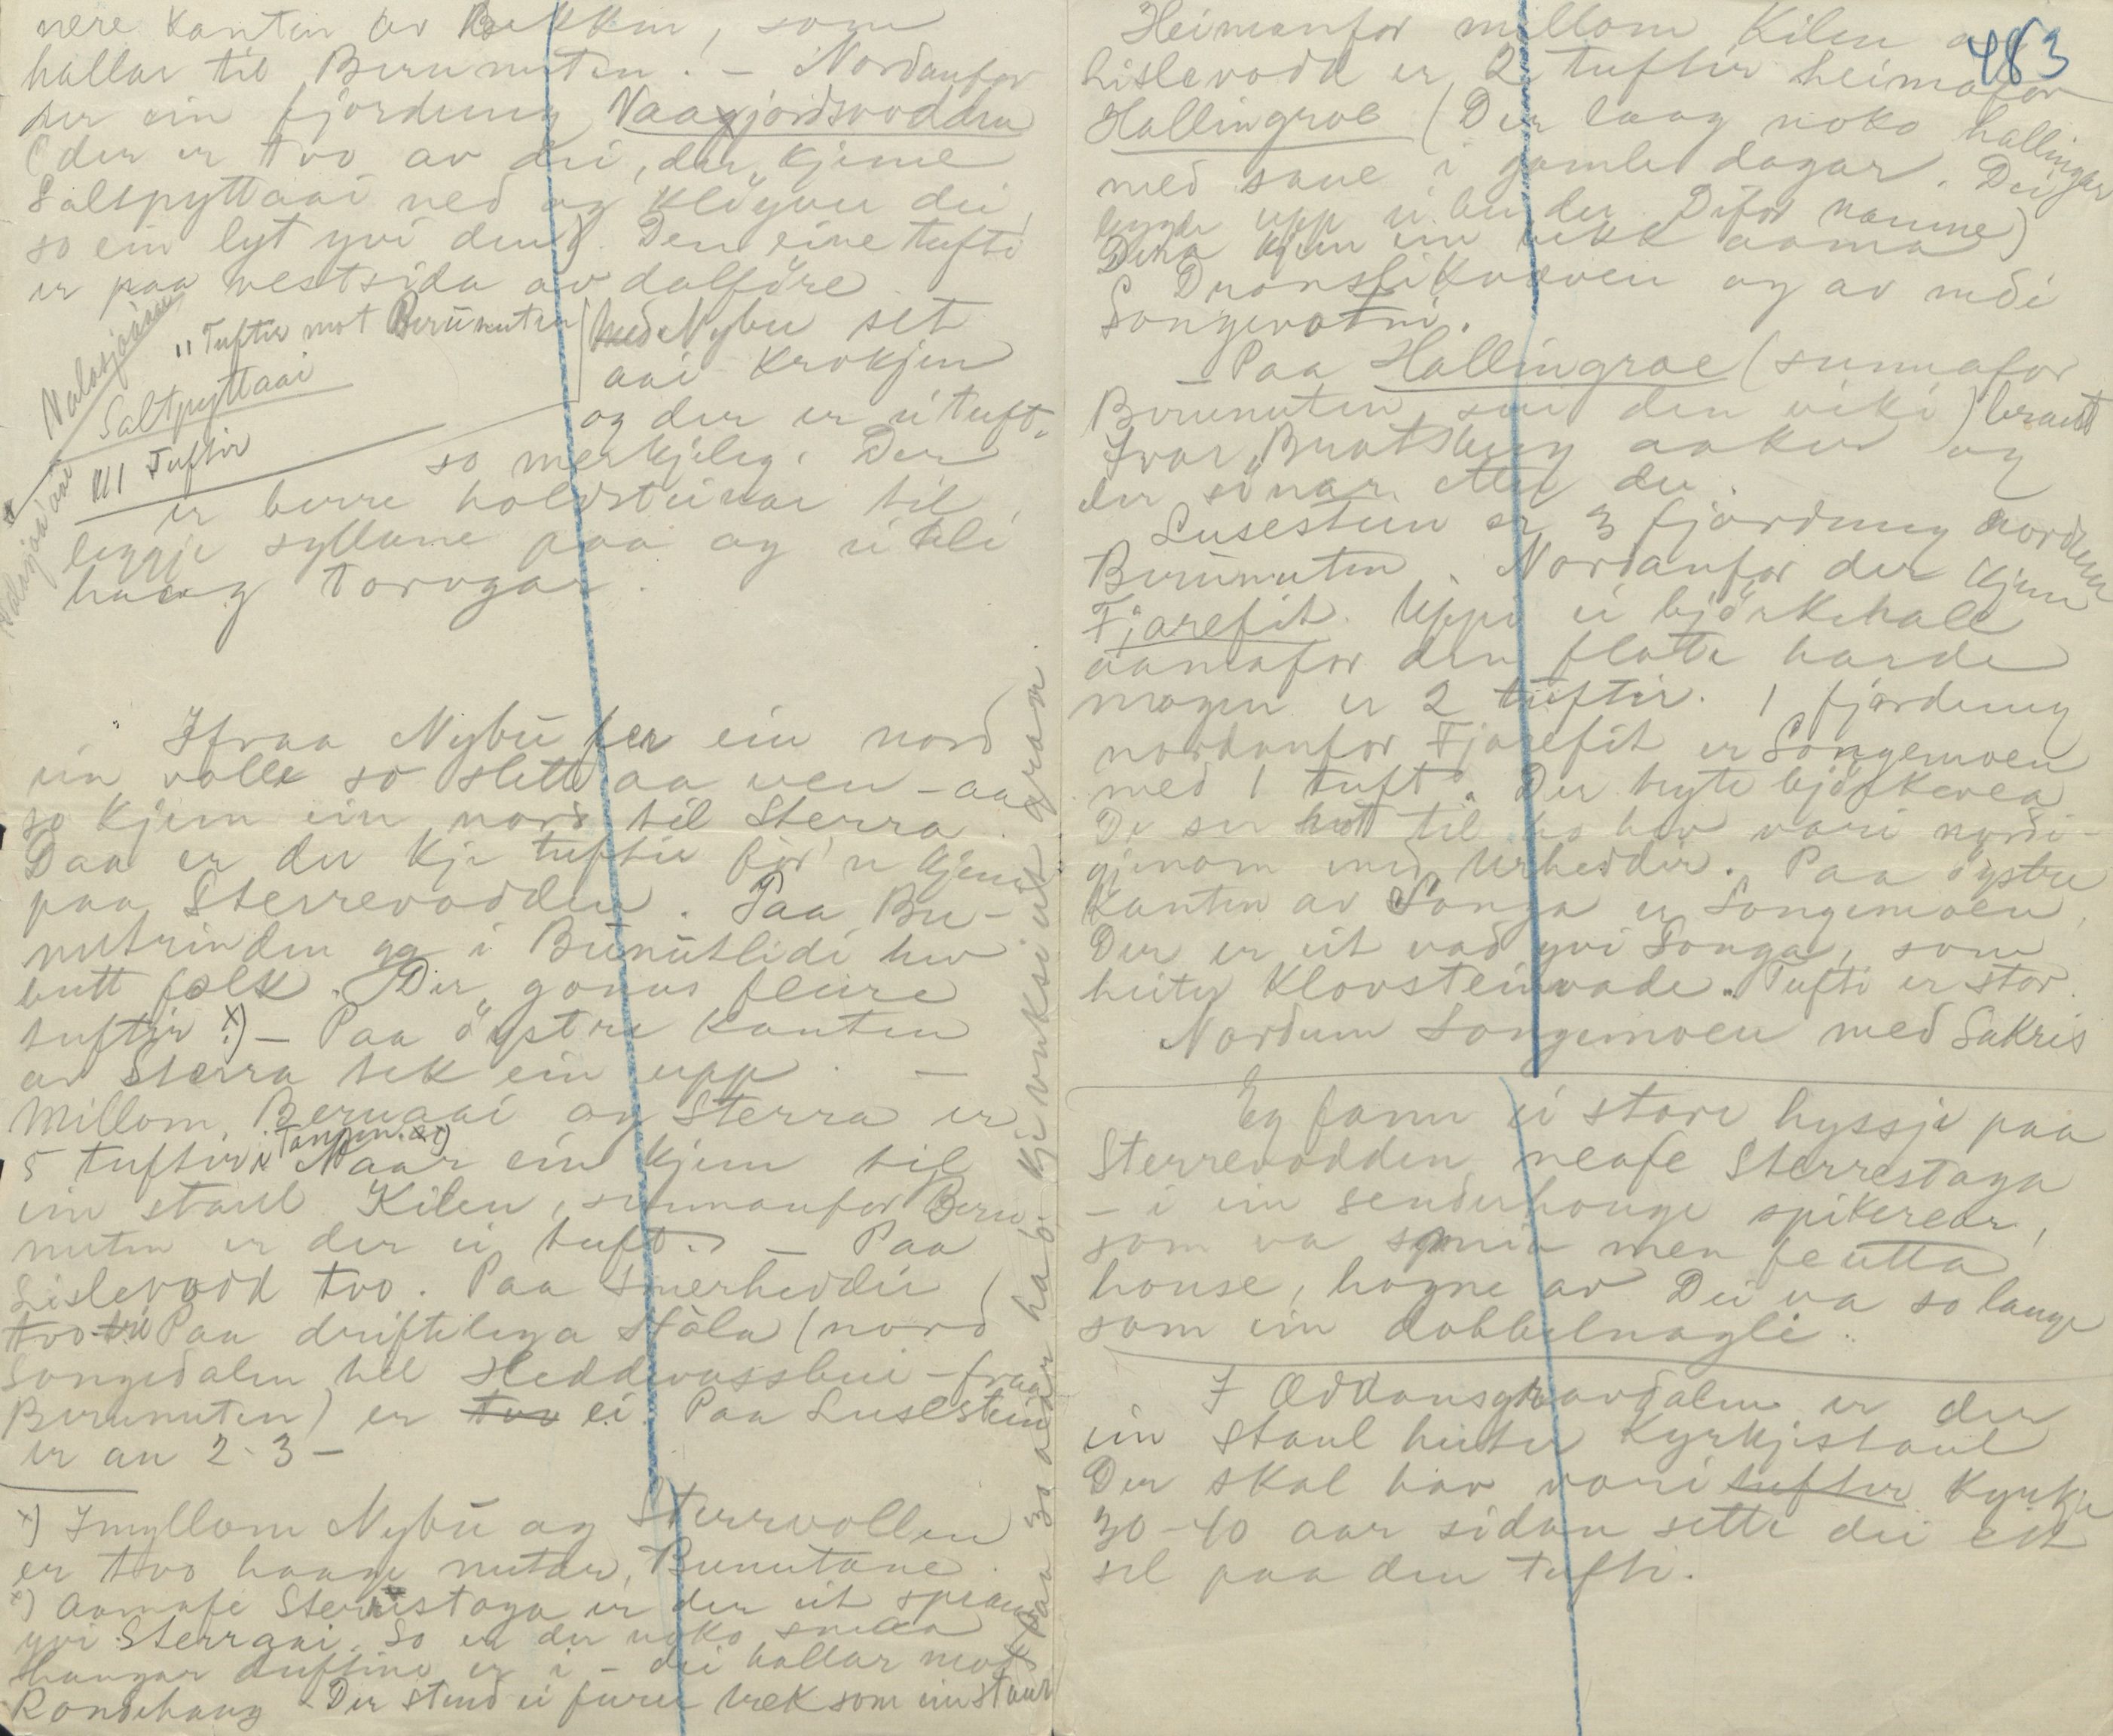 nere kanten av Bekkin, som
hallar til Berunuten. – Nordanfor
her ein fjordung Vaagjordsvodden
(der er tvo av dei, der kjeme
Saltpyttaai ned og kløyver dei,
so ein lyt yvi den). Den eine tufti
er paa vestsida av dalføre.
"Tuftir mot Berunuten
Saltpyttaai
III Tuftir
Med Nybu set
aai Krokjen
og der er ei tuft,
so merkjeleg. Der
er berre holdsteinar til
leggje syllune paa og ei liti
haug torvgar.
Ifraa Nybu fer ein nord
ein volle so slett aa ven – aa
so kjem ein nord til Sterra.
Daa er der kje tuftir før 'n kjem
paa Sterrevodden. Paa Bu-
nutrinden og i Bunutlidi hev
butt folk. Der gonus fleire
tuftir x) – Paa øystre kanten
av Sterra tek ein upp. –
Millom Beruaai og Sterra er
5 tuftir i Tangen. xx)
Naar ein kjem til
ein staul Kilen, sunnanfor Beru-
nuten er der ei tuft. – Paa
Lislevodd tvo. Paa Smerheddir
tvo Paa driftelega Støla (nord
Songedalen til Heddevassbui – fraa
Berunuten) er tvo ei. Paa Lusestein
er an 2-3 –
x) Imyllom Nybu og Sterrvollen
er tvo haage nutar, Bunutane.
x) Aamafe Sterrestoga er der eit sprang
yvi Sterraai. So er der noko snaa
haugar tuftine er i – dei hallar mot
Rondehaug. Der stend ei furu træk som ein staur
paa 30 aar ha o kje vuksi eit graan.
483
Heimanfor millom Kilen og
Lislevodd er 2 tuftir heimafor
Hallingrøe (Der laag noko hallingar
med saue i gamle dagar. Dei
bygde upp ei bu der. Difor namne)
Dera kjem ein bekk aama
Dronslikvæven og av nedi
Songevatni.
– Paa Hallingrøe (sunnafor
Berunuten, sui den viki) braut
Ivar Bratsberg aaker og
der sönar etter de.
Lusestein er 3 fjordung nordum
Berunuten. Nordanfor der kjem
Fjarefit. Uppi ei bjørkehall
aamafor den flate harde
mogen er 2 tuftir. 1 fjordung
nordanfor Fjarefit er Songemoen
med 1 tuft. Der tryte bjørkevea
De ser ut til has hev vori nordi-
gjenom med Urheddir. Paa øystre
kanten av Songa er Songemoen.
Der er eit vad yvi Songa, som
heiter Klovsteinvade. Tufti er stor.
Nordum Songemoen med Sakris
Eg fann ei stor hyssje paa
Sterrevodden neafe Sterrestoga
– i ein senderhonge spikerear,
som va smia men fe utta
house, hogne av Dei va so lange
som ein dobbelnagli.
I Oddansgravdalen er der
ein staul heiter Kyrkjestaul
Der skal hav vori tuftir Kyrkje
30-40 aar sidan sette dei eit
sel paa den tufti.